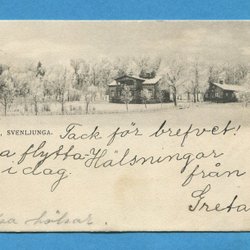 , SVENLJUNGA.
Tack för brefvet!
a flytta. Hälsningar
i dag. från
Greta
sa hälsar.